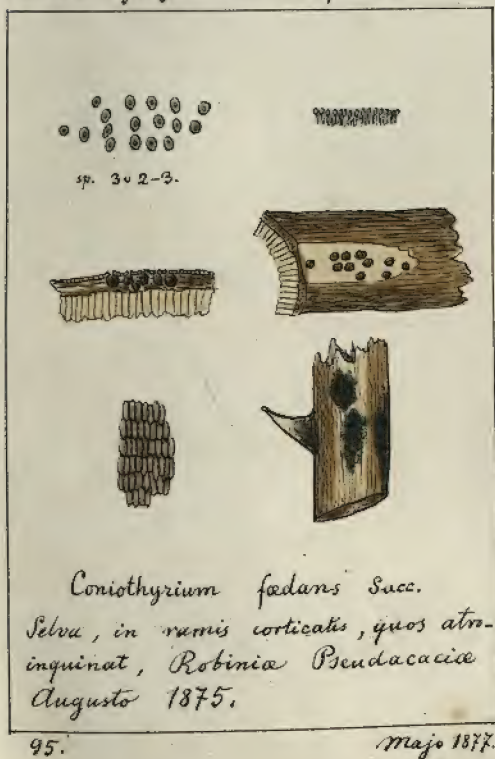 sp. 3 ʋ 2-3.
Coniothyrium fœdans Sacc.
Selva, in ramis corticatis, quos atro-
inquinat, Robiniæ Pseudacaciæ
Augusto 1875.
95.
Majo 1877.